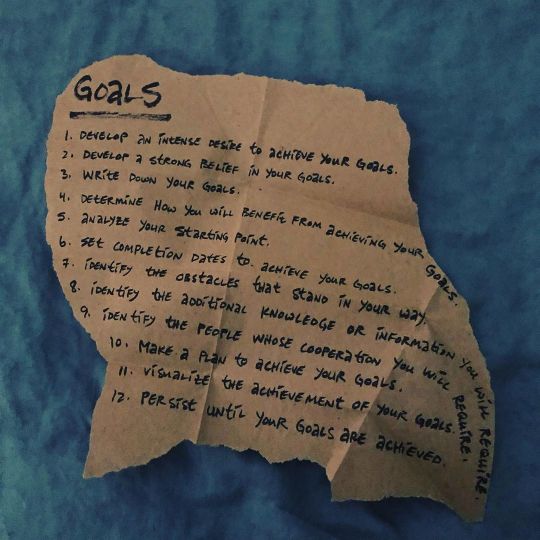 GOALS
1. DEVELOP AN INTENSE DESIRE to ACHIEVE YOUR GOALS.
2. DEVELOP A STRONG BELIEF IN YOUR GOALS.
3. WRITE DOWN YOUR GOALS.
4. DETERMINE HOW YOU WILL BENEFIT FROM ACHIEVING YOUR GOALS.
5. ANALYZE YOUR STARTING POINT.
6. SET COMPLETION DATES to ACHIEVE YOUR GOALS.
7. IDENTIFY THE OBSTACLES THAT STAND IN YOUR WAY.
8. IDENTIFY THE ADDITIONAL KNOWLEDGE OR INFORMATION YOU WILL REQUIRE.
9. IDENTIFY THE PEOPLE WHOSE COOPERATION YOU WILL REQUIRE.
10. MAKE A PLAN to ACHIEVE YOUR GOALS.
11. VISUALIZE THE ACHIEVEMENT OF YOUR GOALS.
12. PERSIST UNTIL YOUR GOALS ARE ACHIEVED.